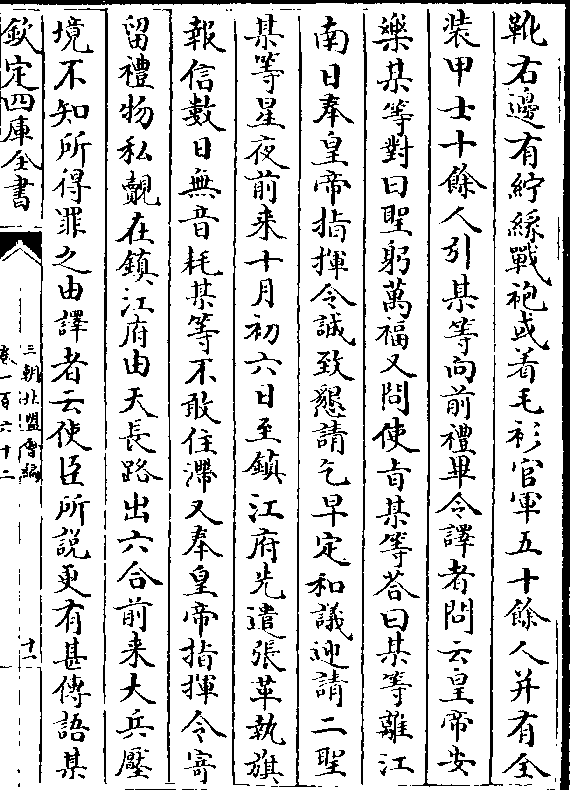 靴右邊有紵絲戰袍或着毛衫官軍五十餘人并有全
裝甲士十餘人引某等向前禮畢令譯者問云皇帝安
樂某等對曰聖躬萬福又問使旨某等荅曰某等離江
南日奉皇帝指揮令誠致懇請乞早定和議迎請二聖
某等星夜前来十月初六日至鎮江府先遣張革執旗
報信數日無音耗某等不敢住滯又奉皇帝指揮令寄
留禮物私覿在鎮江府由天長路出六合前来大兵壓
境不知所得罪之由譯者云使臣所説更有甚傳語某
欽定四庫全書
三朝北盟㑹編
卷一百六十二
十一